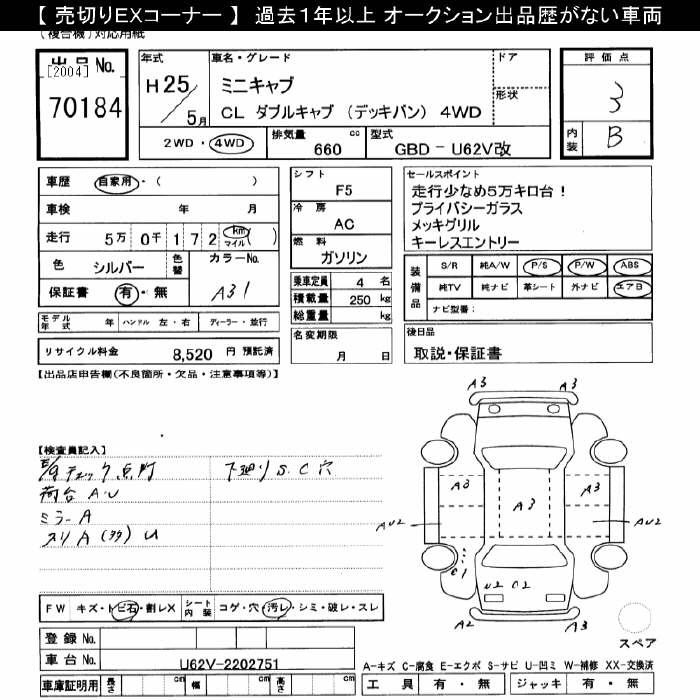 【 売切りEXコーナー 】 過去１年以上 オークション出品歴がない車両
(複合機)対応用紙
出品 No.
[2004]
70184
年式
H25/5月
車名・グレード
ミニキャブ
CL ダブルキャブ (デッキバン) 4WD
ドア
形状
評価点
3
内装
B
2WD・4WD
排気量 cc
660
型式
GBD-U62V改
車歴 自家用・( )
車検 年 月
走行 5万 0千 1 7 2 km マイル ( )
色 シルバー 色替
カラーNo.
A31
保証書 有・無
モデル年式 年 ハンドル 左・右 ディーラー・並行
リサイクル料金 8,520 円 預託済
シフト
F5
冷房
AC
燃料
ガソリン
乗車定員 4 名
積載量 250 kg
総重量 kg
名変期限
月 日
セールスポイント
走行少なめ５万キロ台！
プライバシーガラス
メッキグリル
キーレスエントリー
装備品
S/R 純A/W P/S P/W ABS
純TV 純ナビ 革シート 外ナビ エアB
ナビ型番：
後日品
取説・保証書
【出品店申告欄(不良箇所・欠品・注意事項等)】
【検査員記入】
E/gチェック点灯
下廻り S.C穴
荷台 A.U
ミラーA
スリA (多) U
FW キズ・トビ石・割レX シート内装 コゲ・穴・汚レ・シミ・破レ・スレ
登録 No.
車台 No. U62V-2202751
車庫証明用 長さ cm 幅 cm 高さ cm
A3 A3
A3 A3 A3
AU2 AU2
C1
U2 C2
A2 A3
スペア
A-キズ C-腐食 E-エクボ S-サビ U-凹ミ W-補修 XX-交換済
工具 有・無 ジャッキ 有・無